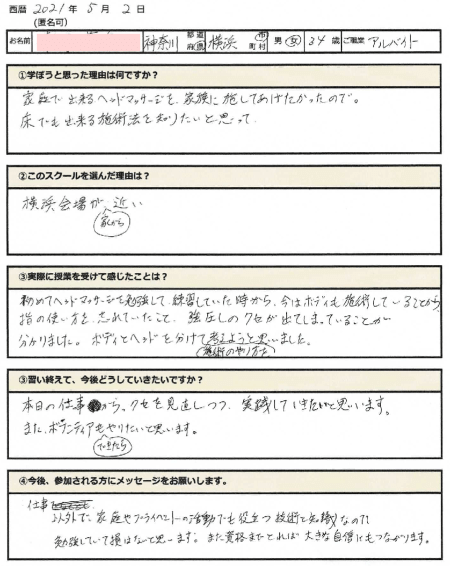 西暦 2021年 5月 2日
(匿名可)
お名前 神奈川 都道府県 横浜 市町村 男・女 34歳 ご職業 アルバイト
①学ぼうと思った理由は何ですか?
家庭で出来るヘッドマッサージを、家族に施してあげたかったので。
床でも出来る施術法を知りたいと思って
②このスクールを選んだ理由は?
横浜会場が近い
家から
③実際に授業を受けて感じたことは?
初めてヘッドマッサージを勉強して、練習していた時から、今はボディも施術していることから、
指の使い方を、忘れていたこと、強圧しのクセが出てしまっていることが
分かりました。ボディとヘッドを分けて考えようと思いました。
(施術のやり方を)
③習い終えて、今後どうしていきたいですか?
本日の仕事から、クセを見直しつつ、実践していきたいと思います。
また、ボランティアもやりたいと思います。
できたら
④今後、参加される方にメッセージをお願いします。
仕事
以外で、家庭やプライベートの活動でも役立つ技術と知識なので
勉強していて損はないと思います。また資格までとれば大きな自信にもつながります。